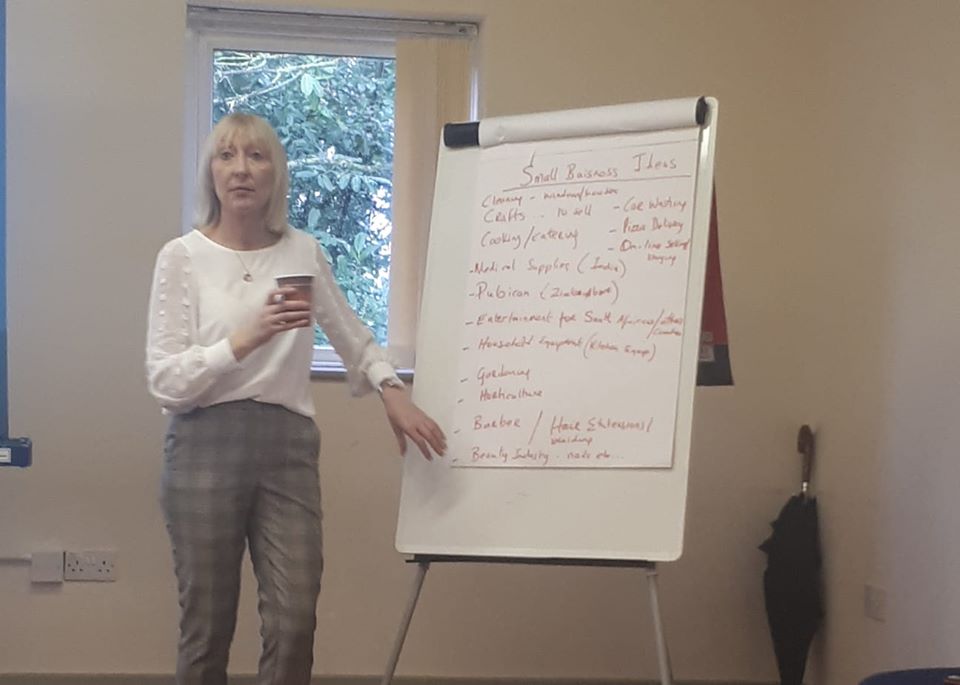 Small Baisness Ideas
Cleaning - windows/houses
Crafts... to sell
Cooking/catering
- Car Washing
- Pizza Delivery
- On-line Selling/
- Medical Supplies (India)
- Publican (Zimbabwe)
- Entertainment for South Africans/others
- Household Equipment (Kitchen Equip)
- Gardening
- Horticulture
- Barber / Hair Extensions/
- Beauty Industry.. nails etc...